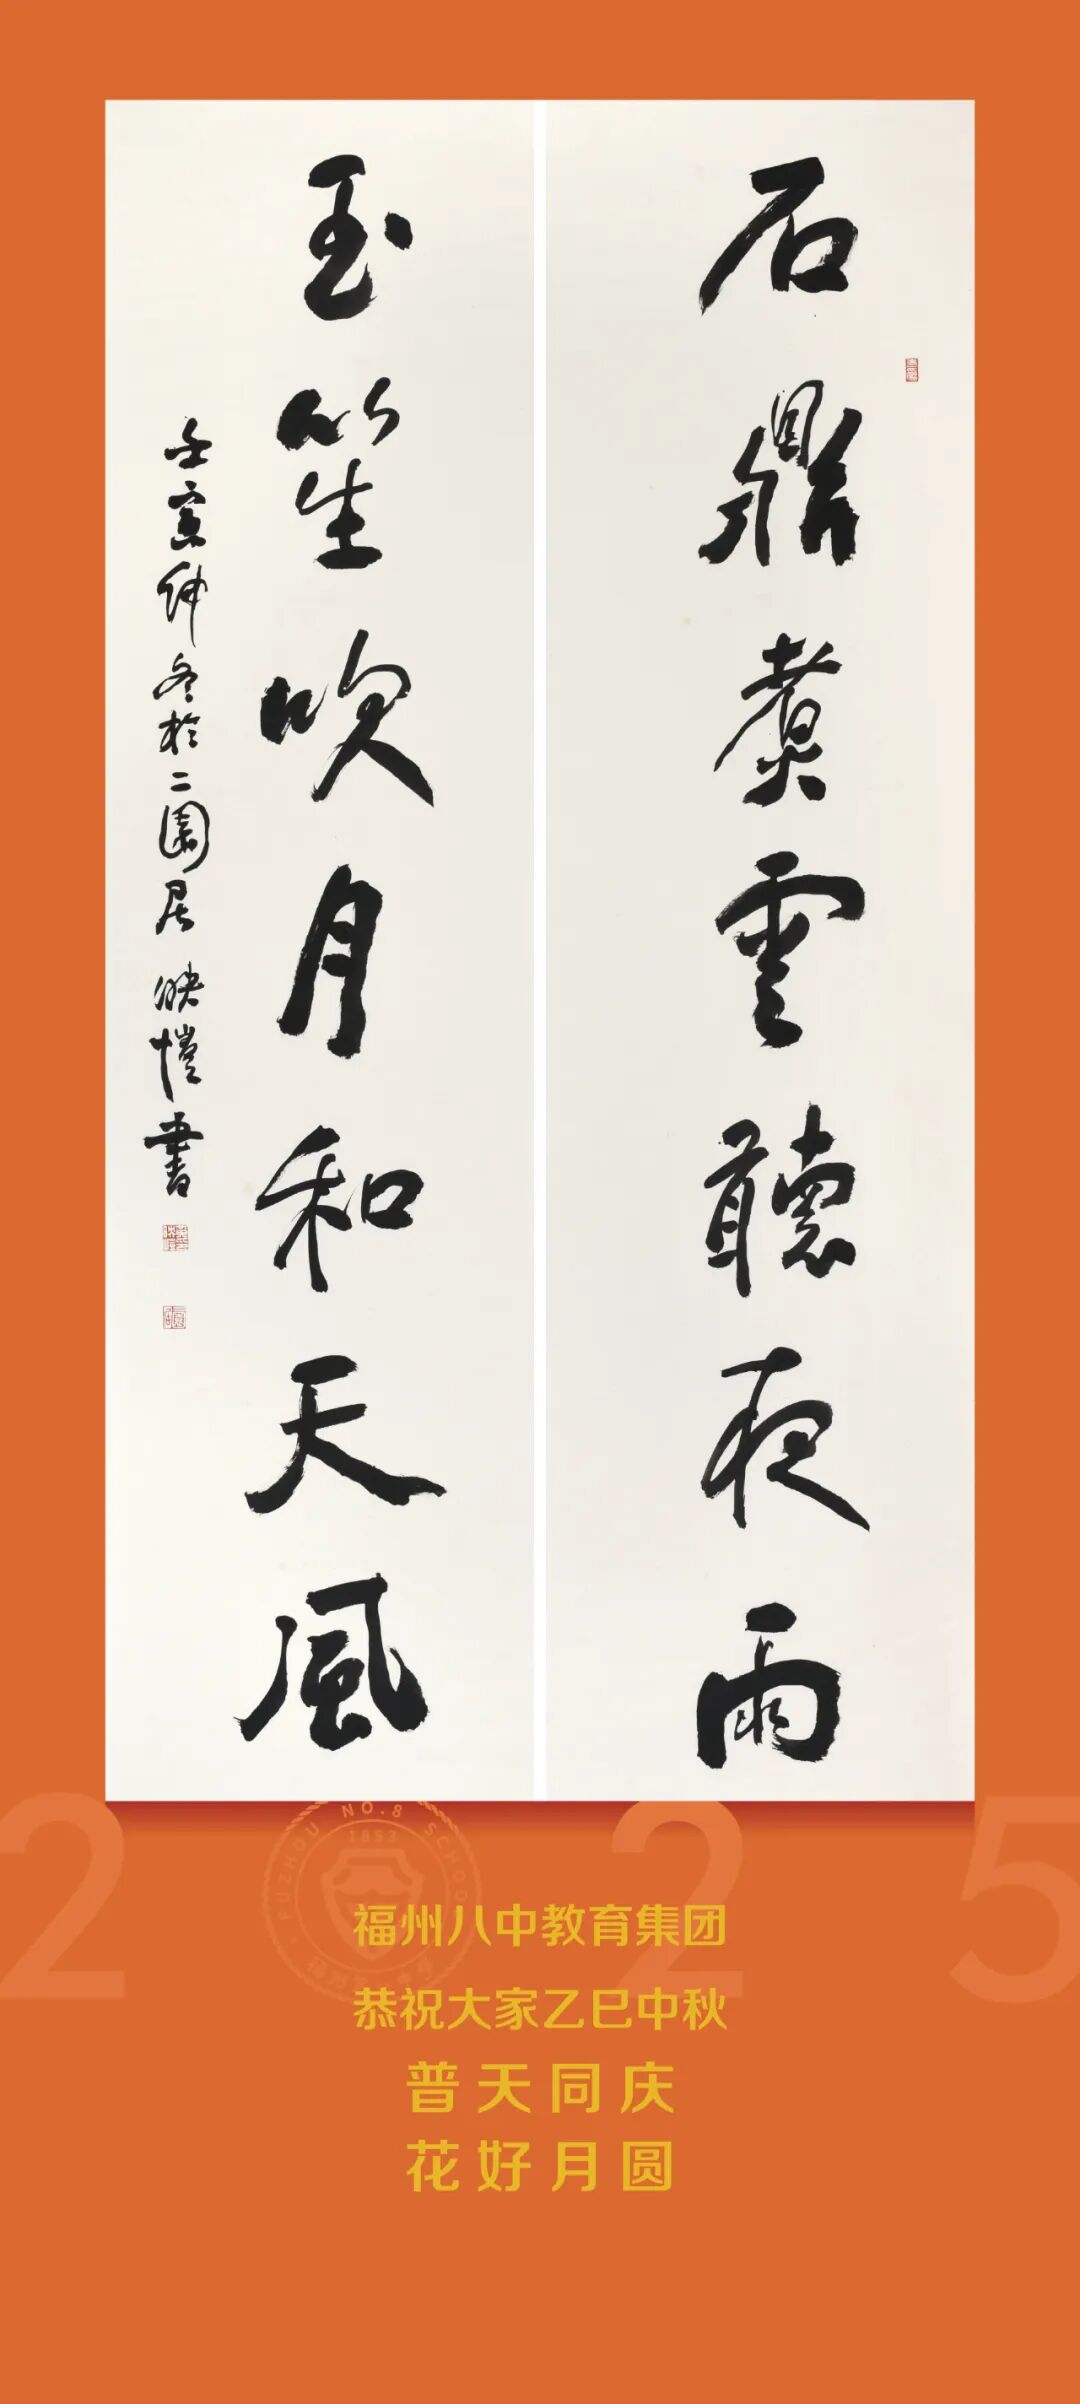 石鼎煮雲聽夜雨
玉笙吹月和天風
壬寅仲冬於二園居 映愷書
2 2 5
FUZHOU NO.8 SCHOOL
1853
福州八中教育集团
恭祝大家乙巳中秋
普天同庆
花好月圆